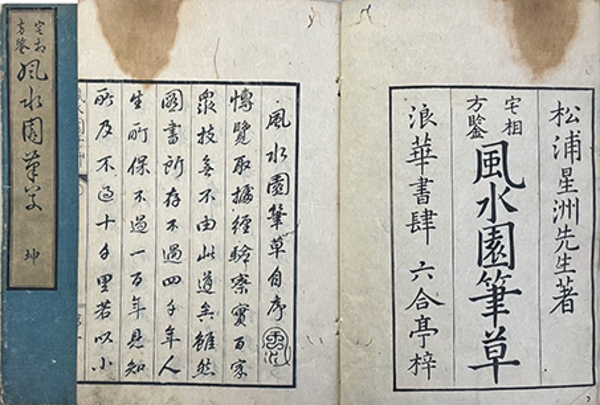 松浦星洲先生著
宅相
方鑒
風水園筆草
浪華書肆 六合亭梓
風水園筆草自序
博覽取攄經驗察實百家
衆技無不由此道矣雖然
圖書所存不過四千年人
生所保不過一百年見知
所及不過十千里若以小
宅相
方鑒
風水園筆草
坤